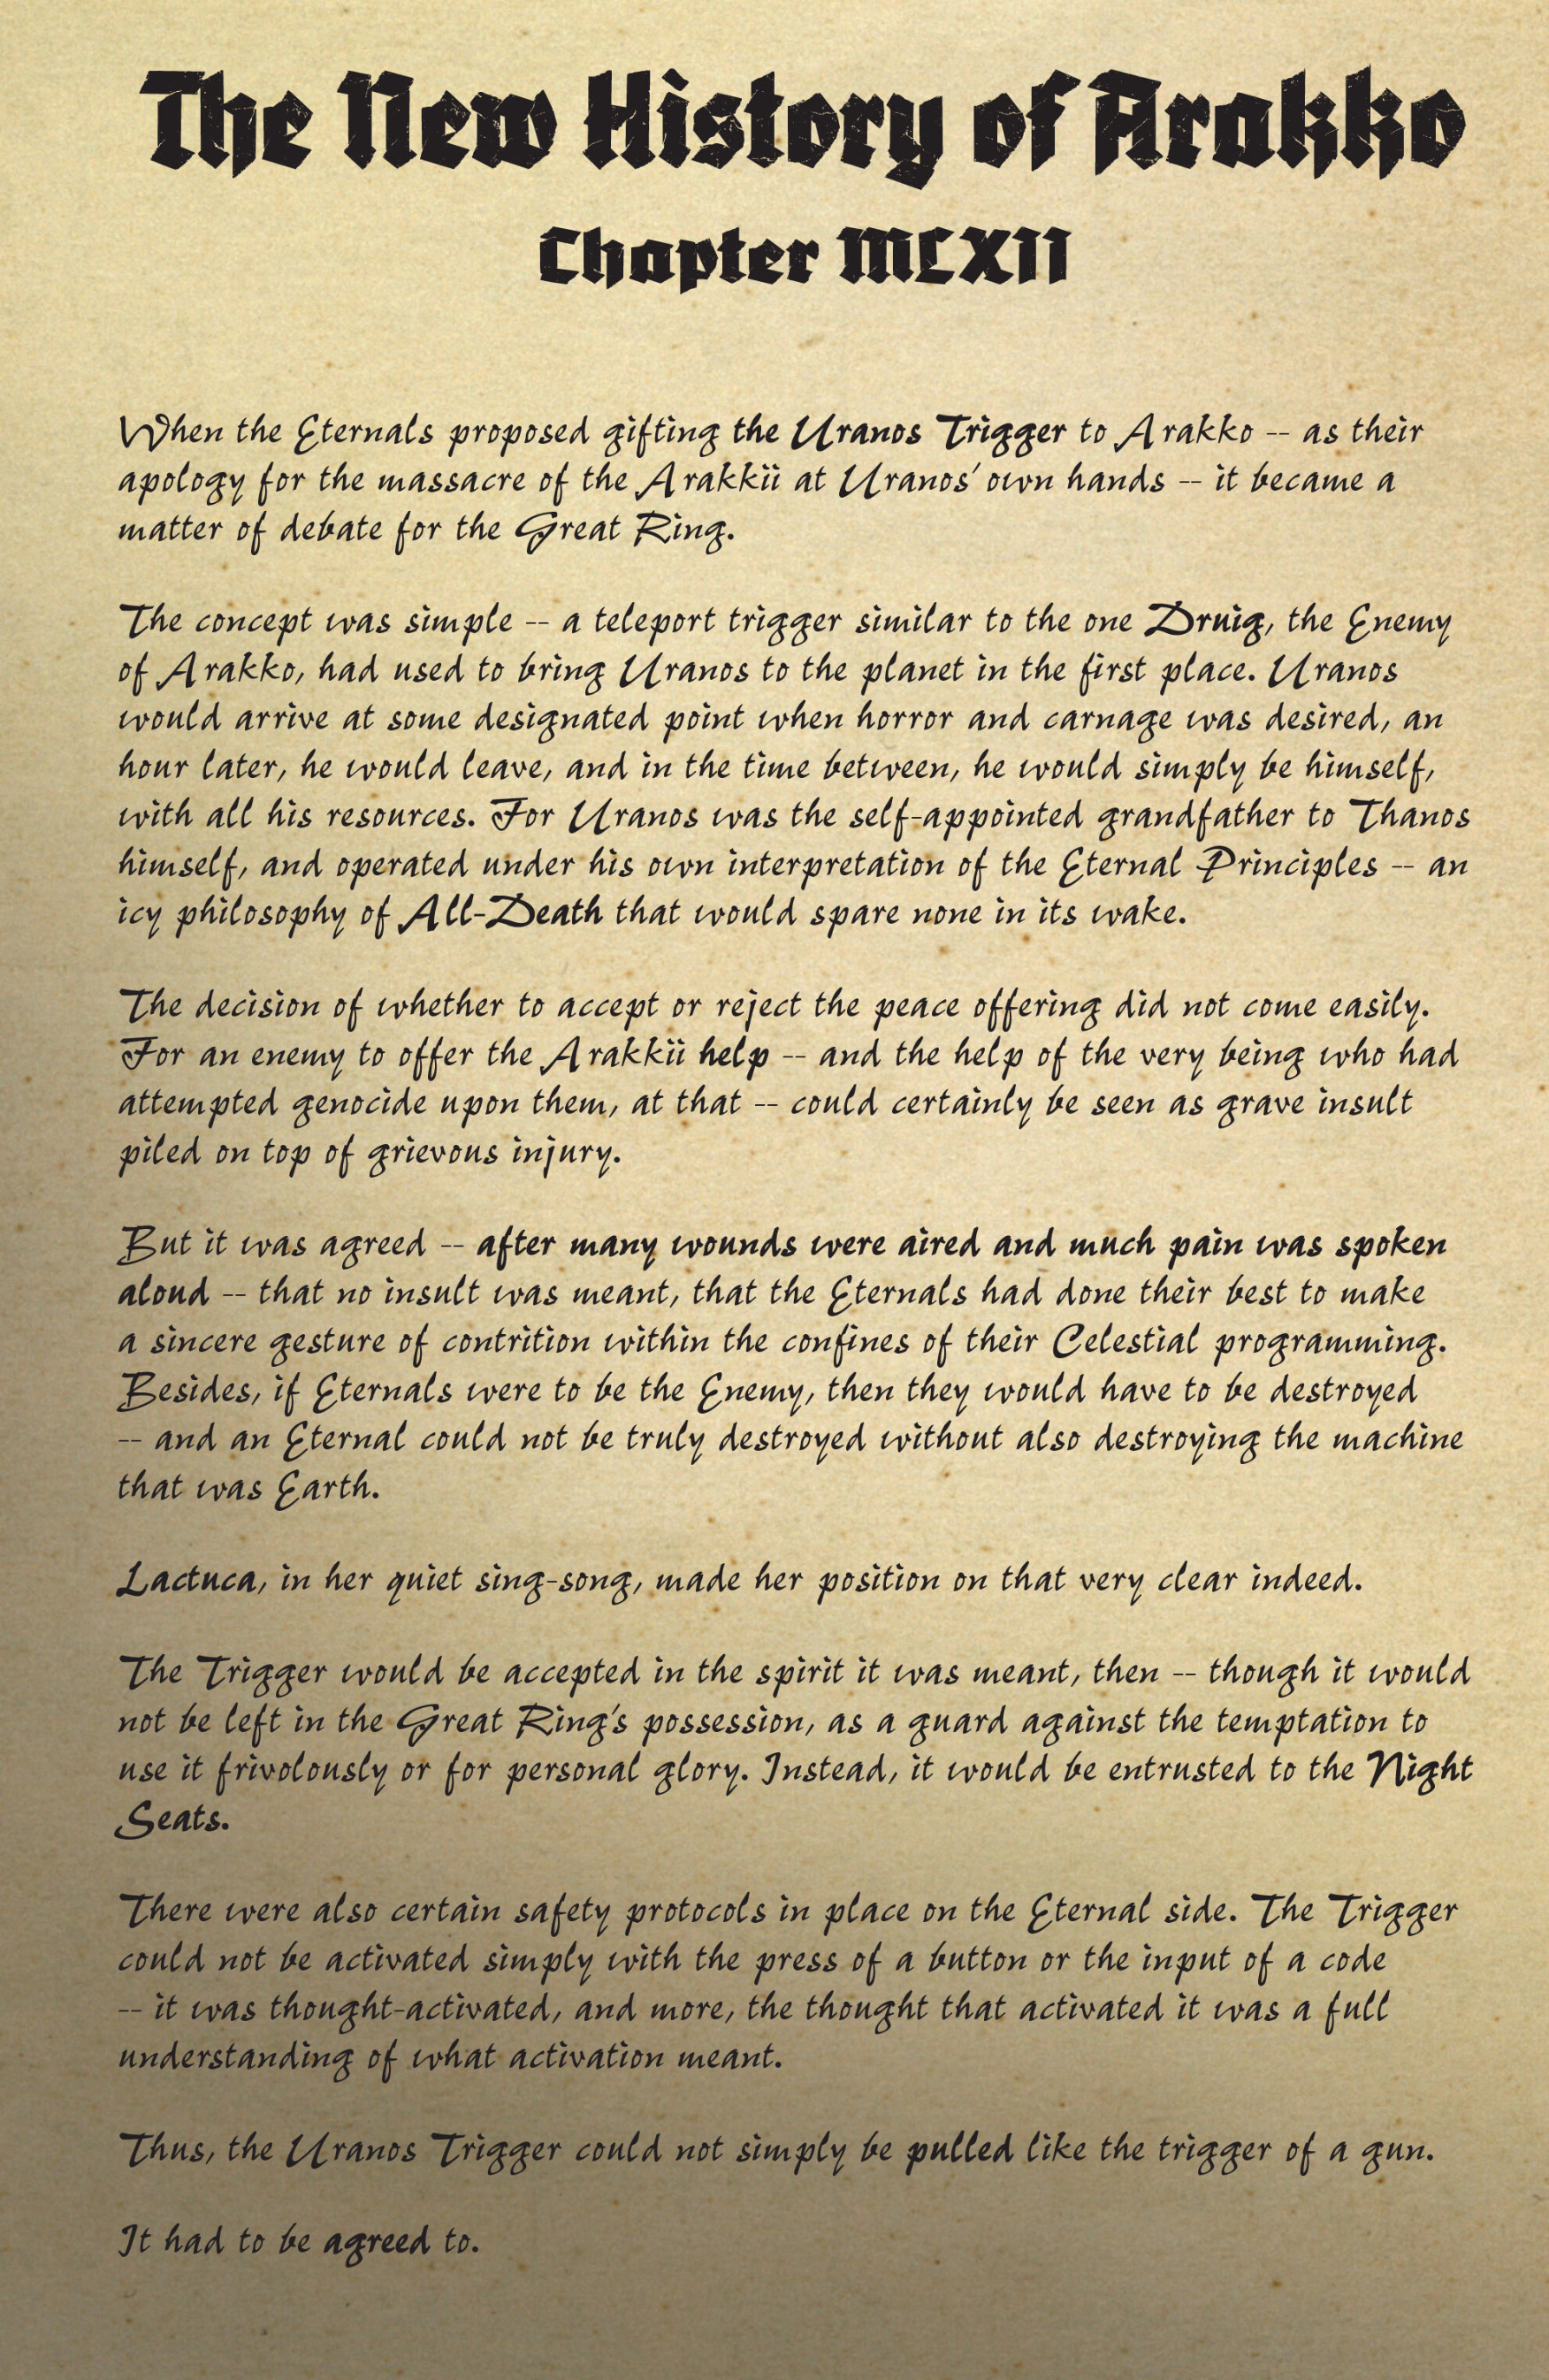 The New History of Arakko
Chapter MCXII
When the Eternals proposed gifting the Uranos Trigger to Arakko -- as their
apology for the massacre of the Arakkii at Uranos' own hands -- it became a
matter of debate for the Great Ring.
The concept was simple -- a teleport trigger similar to the one Druig, the Enemy
of Arakko, had used to bring Uranos to the planet in the first place. Uranos
would arrive at some designated point when horror and carnage was desired, an
hour later, he would leave, and in the time between, he would simply be himself,
with all his resources. For Uranos was the self-appointed grandfather to Thanos
himself, and operated under his own interpretation of the Eternal Principles -- an
icy philosophy of All-Death that would spare none in its wake.
The decision of whether to accept or reject the peace offering did not come easily.
For an enemy to offer the Arakkii help -- and the help of the very being who had
attempted genocide upon them, at that -- could certainly be seen as grave insult
piled on top of grievous injury.
But it was agreed -- after many wounds were aired and much pain was spoken
aloud -- that no insult was meant, that the Eternals had done their best to make
a sincere gesture of contrition within the confines of their Celestial programming.
Besides, if Eternals were to be the Enemy, then they would have to be destroyed
-- and an Eternal could not be truly destroyed without also destroying the machine
that was Earth.
Lactuca, in her quiet sing-song, made her position on that very clear indeed.
The Trigger would be accepted in the spirit it was meant, then -- though it would
not be left in the Great Ring's possession, as a guard against the temptation to
use it frivolously or for personal glory. Instead, it would be entrusted to the Night
Seats.
There were also certain safety protocols in place on the Eternal side. The Trigger
could not be activated simply with the press of a button or the input of a code
-- it was thought-activated, and more, the thought that activated it was a full
understanding of what activation meant.
Thus, the Uranos Trigger could not simply be pulled like the trigger of a gun.
It had to be agreed to.